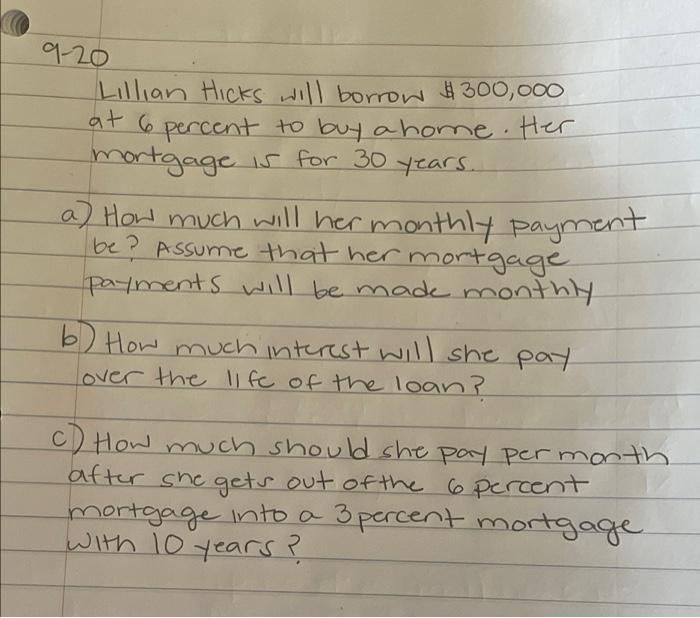 9-20
Lillian Hicks will borrow $300,000
at 6 percent to buy a home. Her
mortgage is for 30 years.
a) How much will her monthly payment
be? Assume that her mortgage
payments will be made monthly
b) How much interest will she pay
over the life of the loan?
c) How much should she pay per month
after she gets out of the 6 percent
mortgage into a 3 percent mortgage
with 10 years?